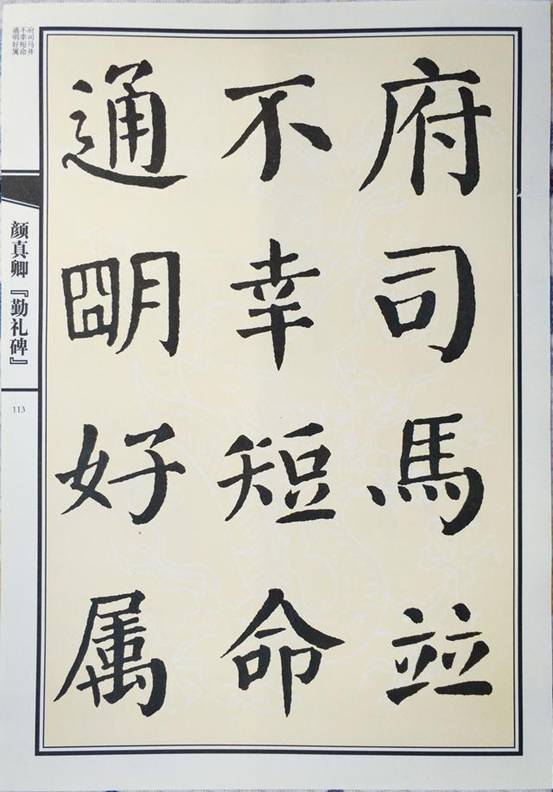 府司马并
不幸短命
通明好属
府司馬並
不幸短命
通明好属
颜真卿『勤礼碑』
113